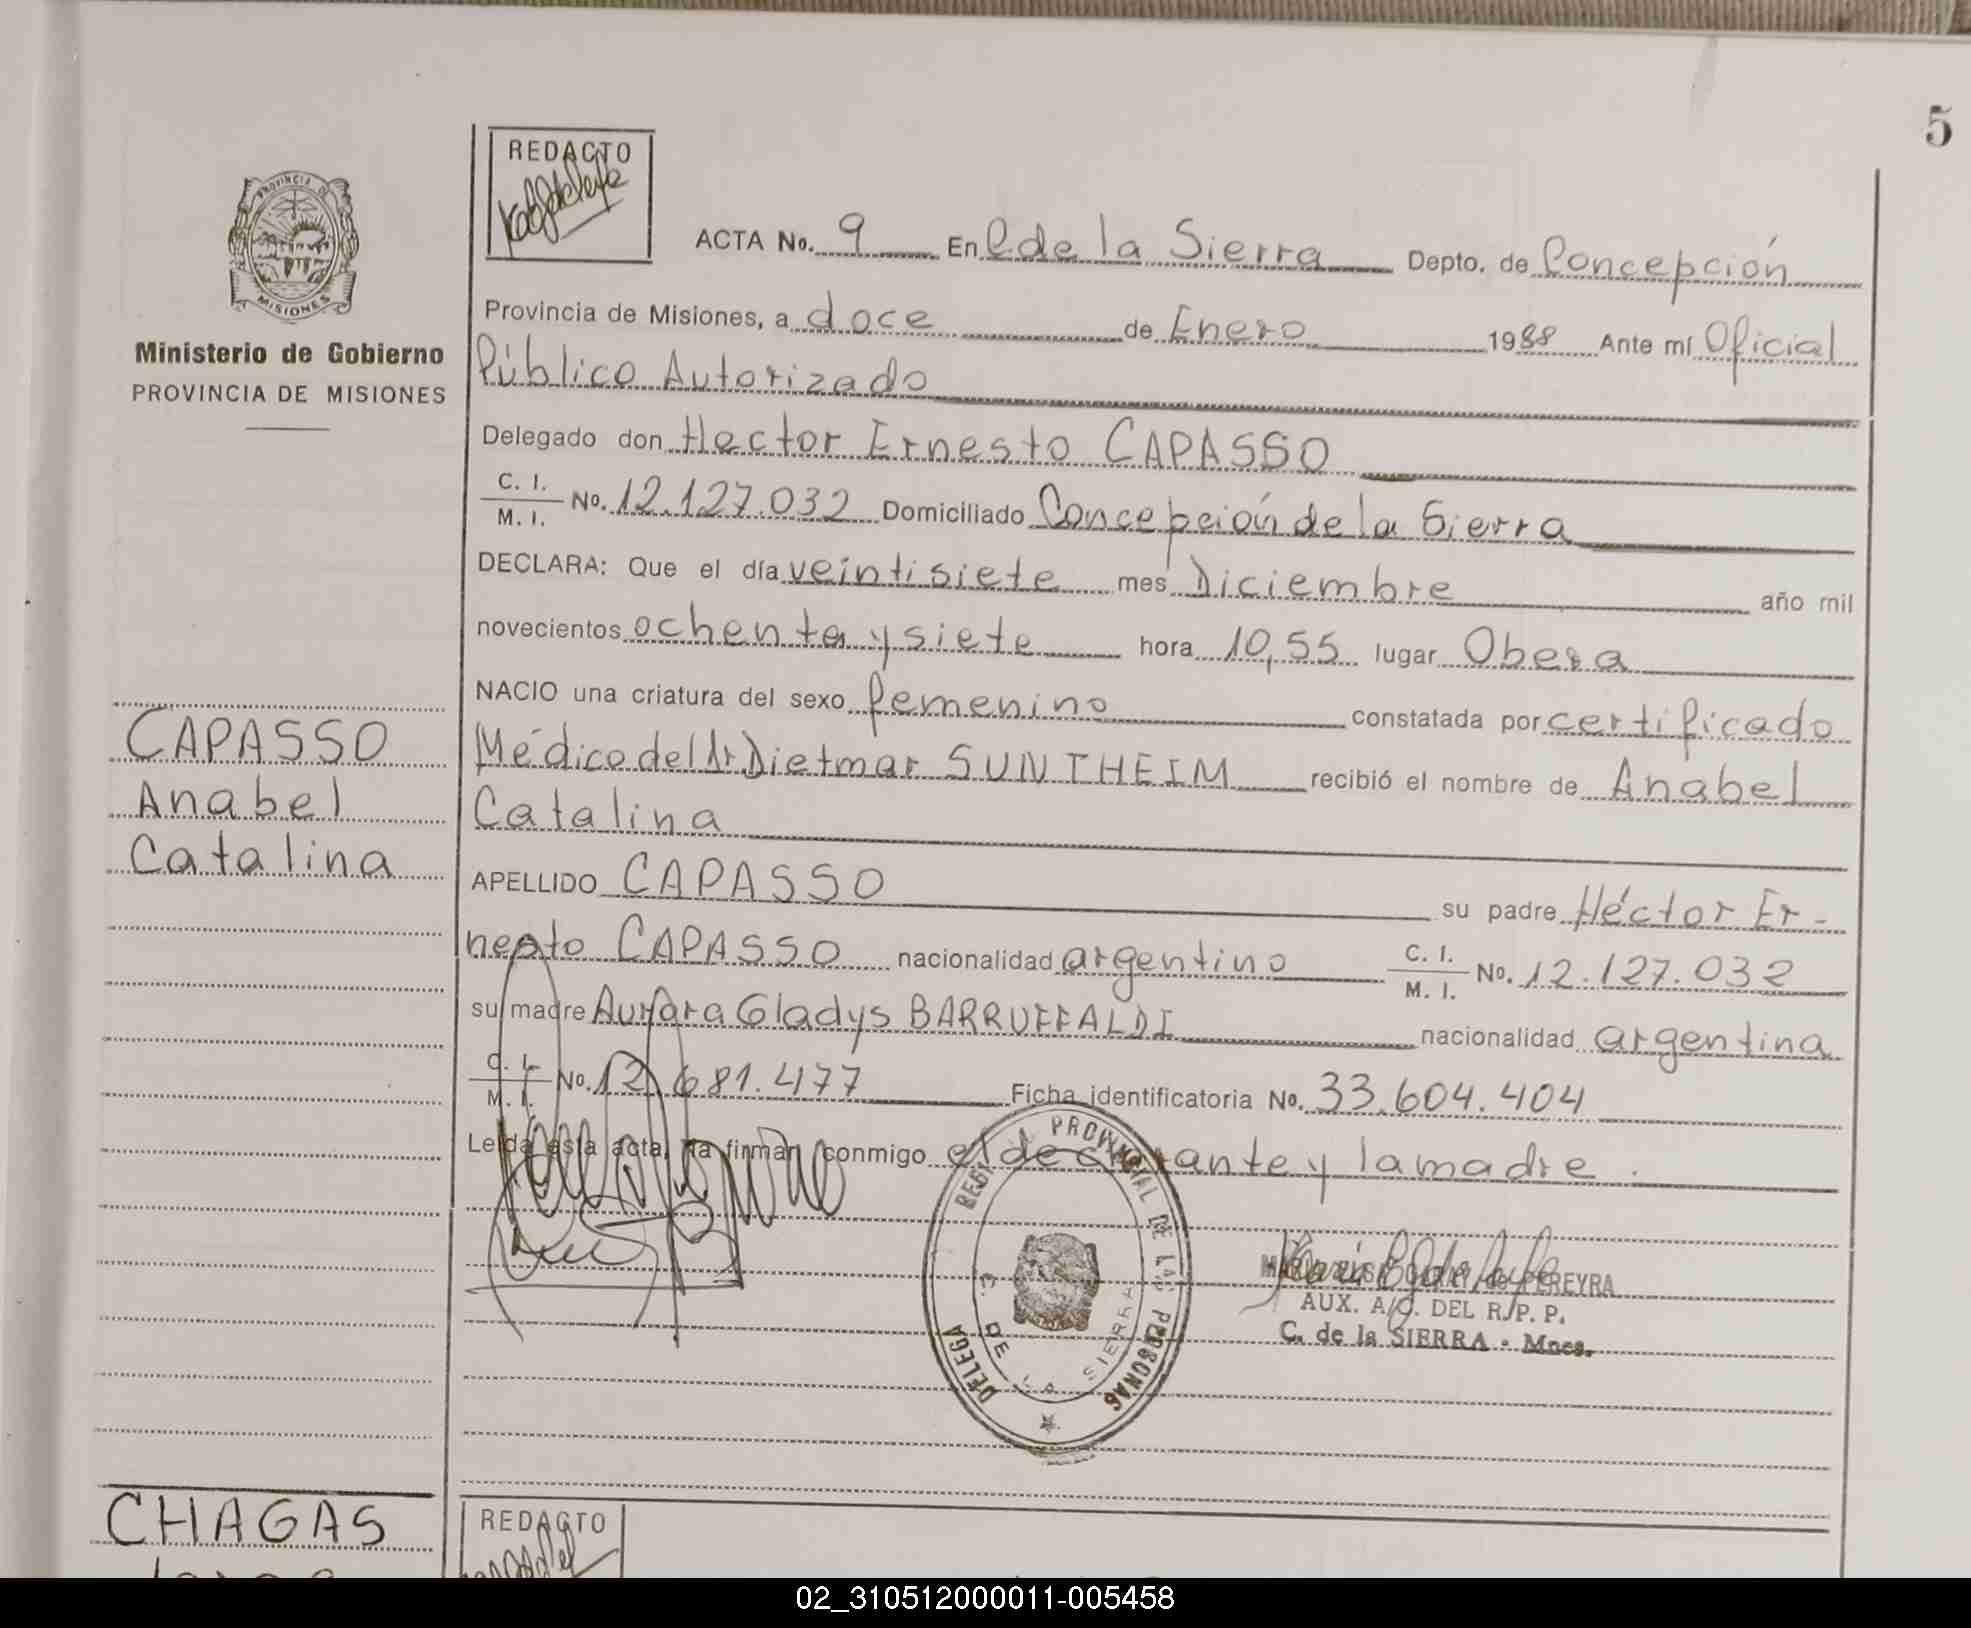 5
PROVINCIA DE
MISIONES
Ministerio de Gobierno
PROVINCIA DE MISIONES
REDACTO
ACTA No. 9 En C de la Sierra Depto. de Concepción
Provincia de Misiones, a doce de Enero 1988 Ante mí Oficial
Público Autorizado
Delegado don Hector Ernesto CAPASSO
C. I. / M. I. No. 12.127.032 Domiciliado Concepción de la Sierra
DECLARA: Que el día veintisiete mes Diciembre año mil
novecientos ochenta y siete hora 10,55 lugar Obera
NACIO una criatura del sexo femenino constatada por certificado
Médico del Dr Dietmar SUNTHEIM recibió el nombre de Anabel
Catalina
APELLIDO CAPASSO su padre Héctor Er-
nesto CAPASSO nacionalidad argentino C. I. / M. I. No. 12.127.032
su madre Aurora Gladys BARRUFFALDI nacionalidad argentina
C. I. / M. I. No. 12.681.477 Ficha identificatoria No. 33.604.404
Leída esta acta, la firman conmigo el declarante y la madre.
CAPASSO
Anabel
Catalina
PROVINCIAL DE LAS PERSONAS
DELEGA
C. DE LA SIERRA
de PEREYRA
AUX. A/C. DEL R. P. P.
C. de la SIERRA - Mnes.
CHAGAS
REDACTO
02_310512000011-005458